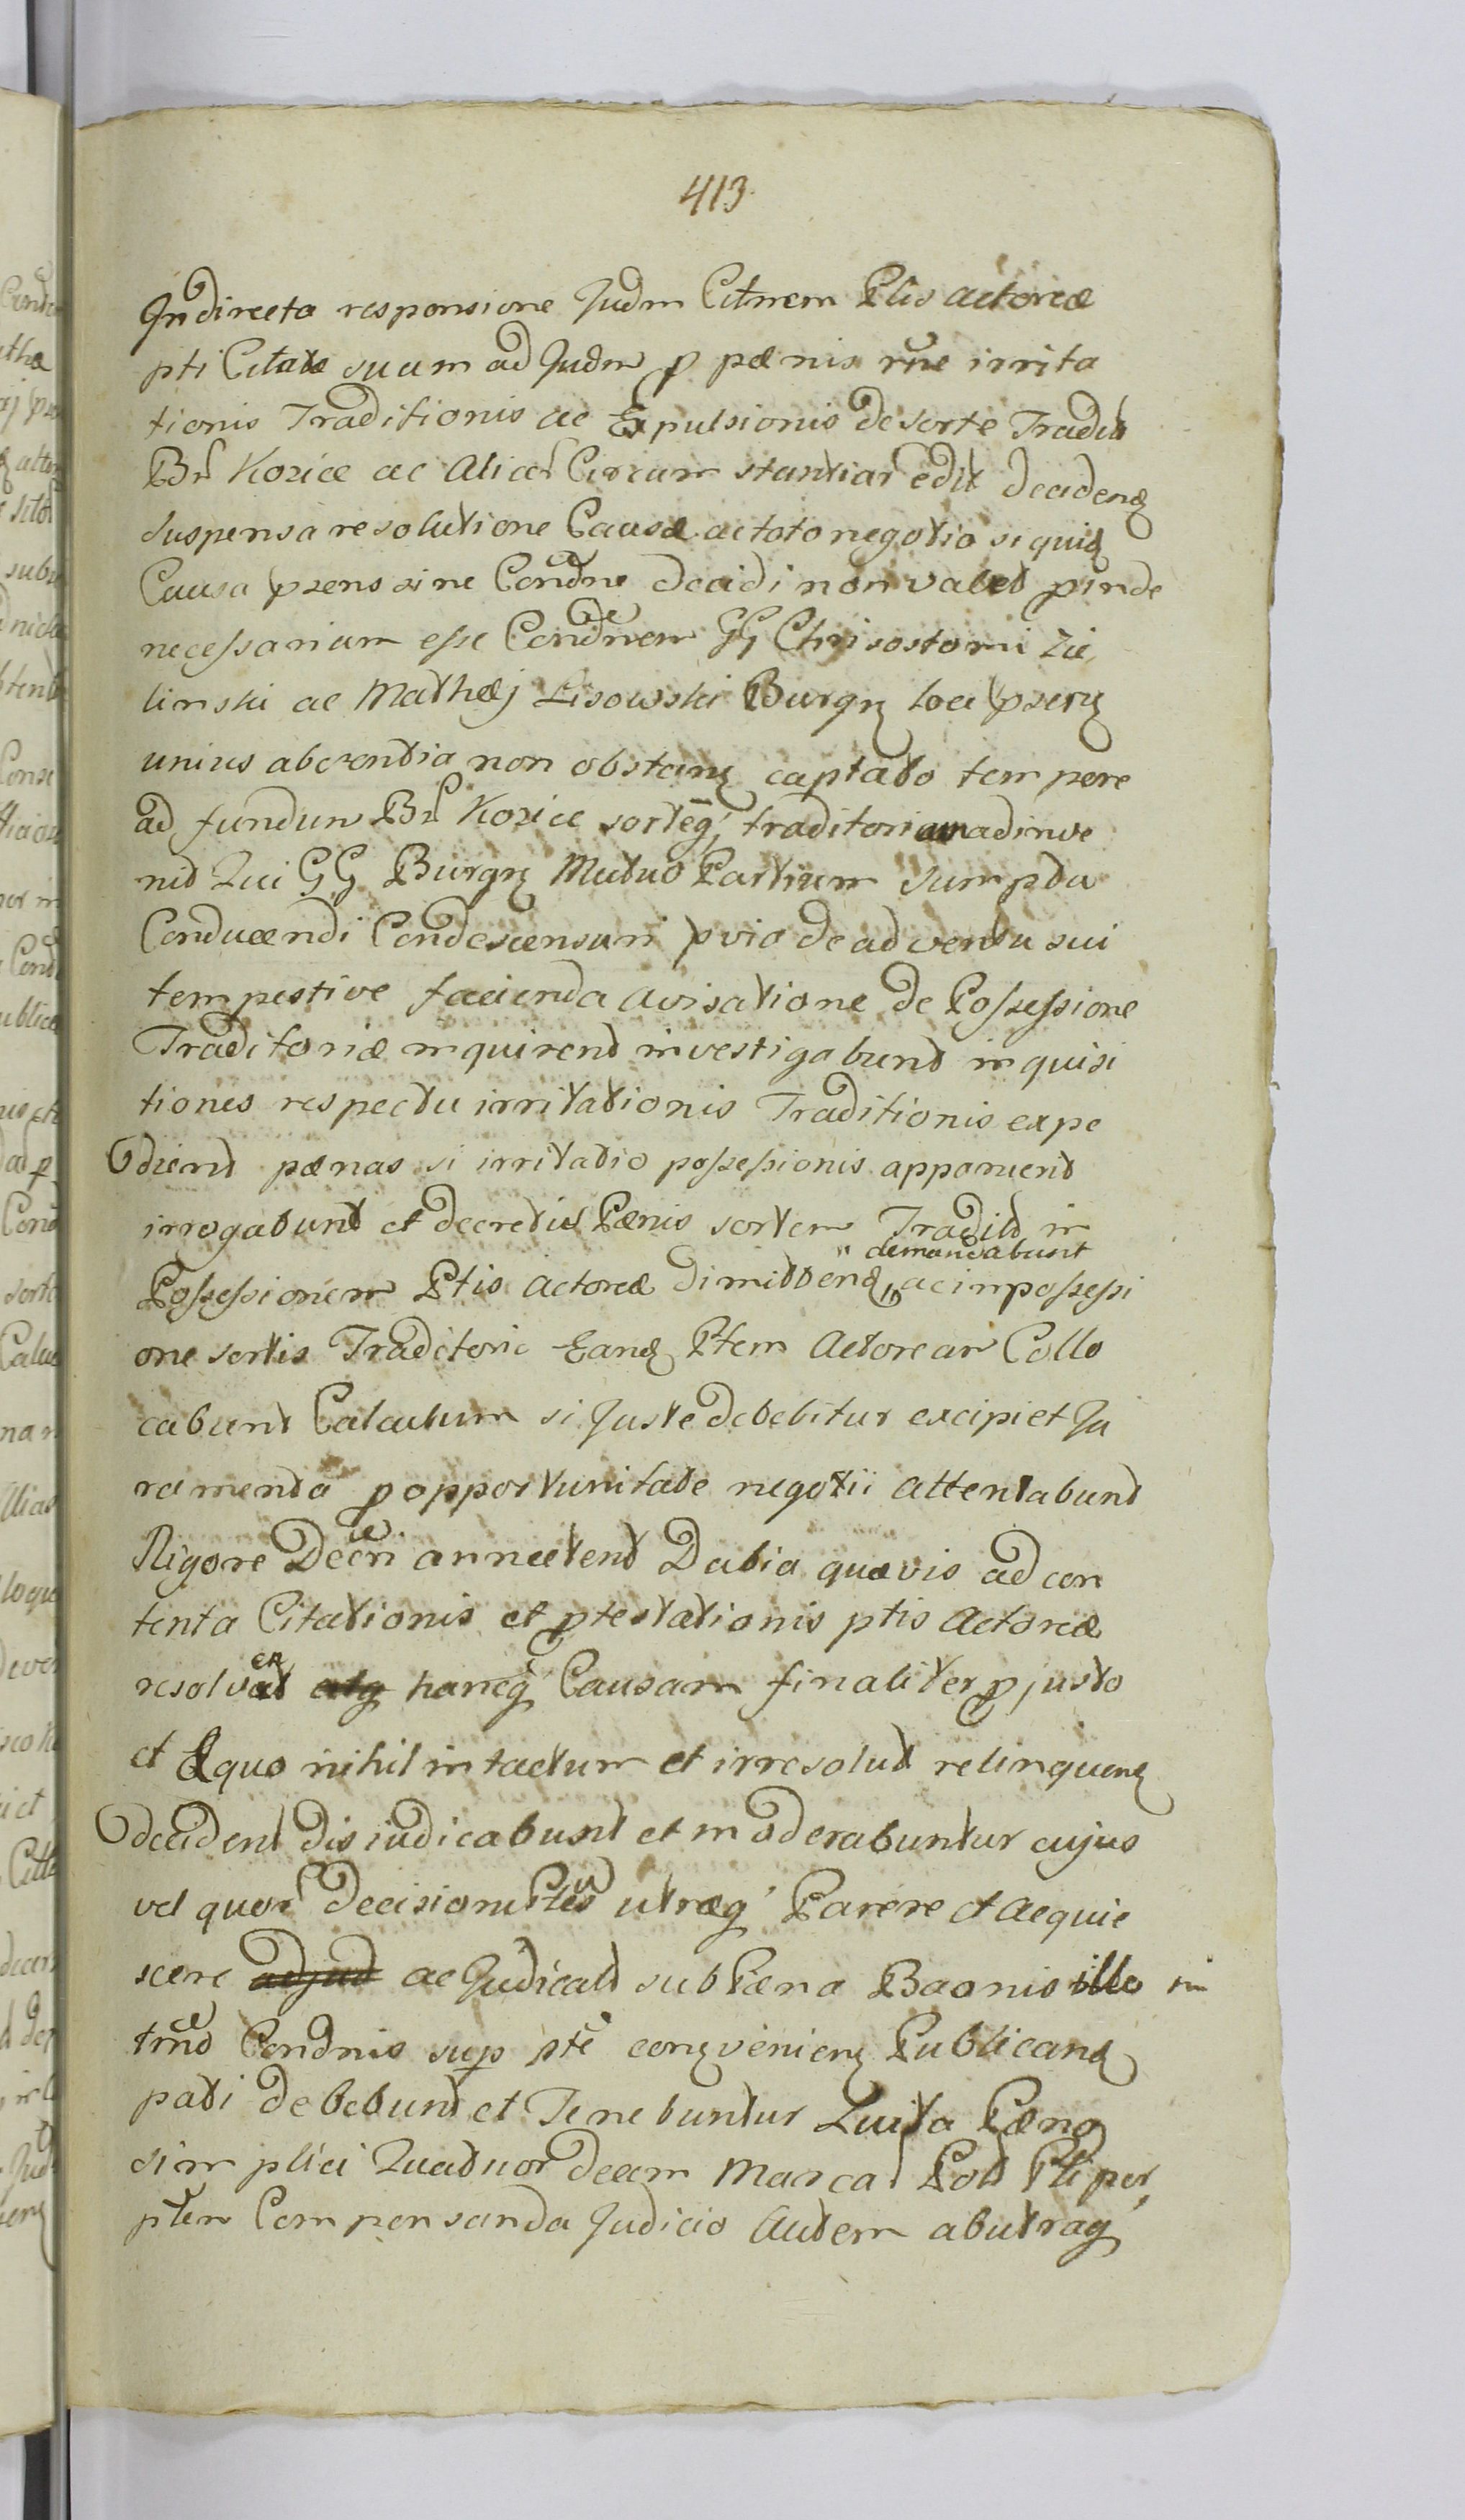 413.
Indirecta responsione Judm Citnem Ptis actoreæ
pti Citatæ suam ad Judm p pænis rne irrita
tionis Traditionis ac Expulsionis de sorte Tradit
Br Kozice ac Aliar Circum stantiar edit decidenq
suspensa resolutione Causæ ac toto negotio siquidq
Causa pzens sine Condne decidi non valet pinde
necessarium esse Condnem GG Chrisostomi Zie
linski ac Mathæj Lisowski Burgrq loci pzerq
unius absentia non obstanq captato tempore
ad fundum Br Kozice sortēq traditoriam adinve
nit Qui GG Burgrq Mutuo Partium sumptu
Conducendi Condescensuri pvio de adventu sui
tempestive facienda avisatione de Possessione
Traditoriæ inquirent investigabunt inquisi
tiones respectu irritationis Traditionis expe
dient pænas si irritatio possessionis apparuerit
irrogabunt et decretis Pænis sortem Tradit in
demandabunt
Possessionem Ptis actoreæ dimittenq ac in possessi
one sortis Traditorie Eanq Ptem Actoream Collo
cabunt Calculum si Juste debebitur excipiet Ju
ramenta p opportunitate negotii attentabunt
Rigore Decri annectent Dubia quævis ad con
tenta Citationis et ptestationis ptis Actoreæ
resolvent atq hancq Causam finaliter p justo
et Æquo nihil intactum et irresolut relinquenq
decident disiudicabunt et moderabuntur cujus
vel quor decisioni Ptes utræq Parere et acquie
scere adjud ac Judicatd sub Pæna Baonis illo in
tmo Condnis sup ste conqvenienq Publicanq
pati debebunt et Tenebuntur Luita Pæna
simplici Quatuordecem Marcar Pol Pti per
ptem Compensanda Judicio Autem ab utraq